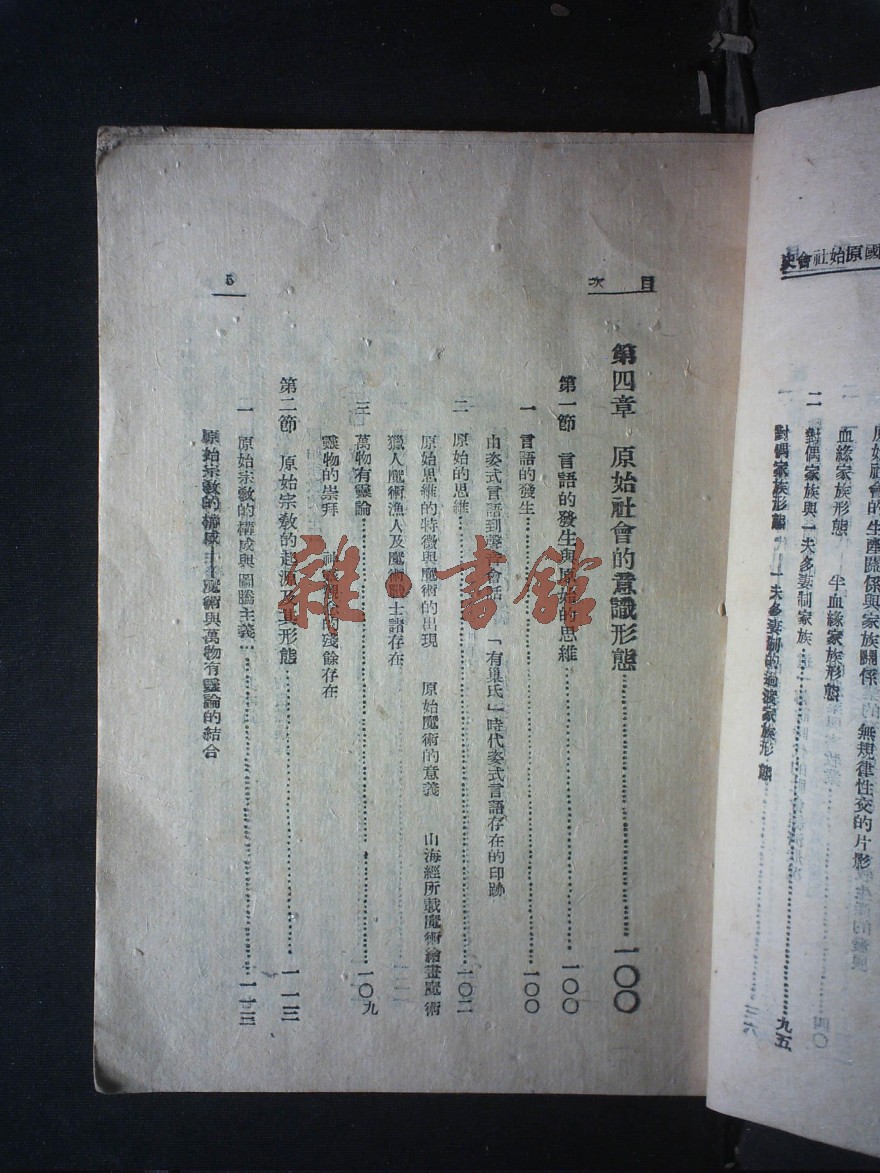 國原始社會史
原始社會的生產關係與家族關係
無規律性交的片影
血緣家族形態　半血緣家族形態
二　對偶家族與一夫多妻制家族……九五
對偶家族形態　一夫多妻制的過渡家族形態
目次
第四章　原始社會的意識形態……一〇〇
第一節　言語的發生與原始的思維……一〇〇
一　言語的發生……一〇〇
由姿式言語到聲音會話　「有巢氏」時代姿式言語存在的印跡
二　原始的思維……一〇二
原始思維的特徵與魔術的出現　原始魔術的意義　山海經所載魔術繪畫魔術
獵人魔術漁人及魔術戰士諸存在
三　萬物有靈論……一〇九
靈物的崇拜　的殘餘存在
第二節　原始宗教的起源及其形態……一一三
一　原始宗教的構成與圖騰主義……一一三
原始宗教的構成　魔術與萬物有靈論的結合
5
雜·書館